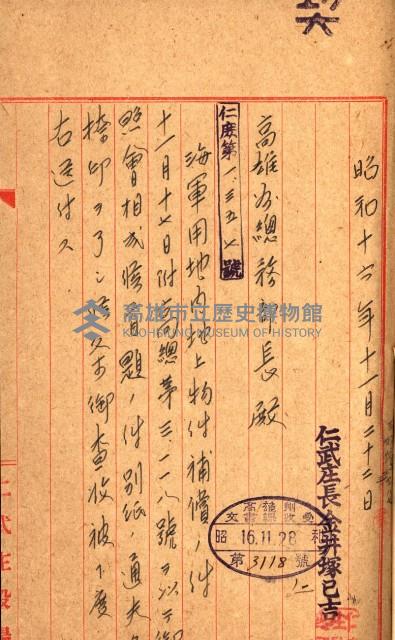 昭和十六年十一月二十二日
仁武庄長金井塚巳吉
高雄州總務部長殿
仁庶第一、三五七號
海軍用地內地上物件補償ノ件
十一月十七日附高總第三一一八號ヲ以テ御
照會相成候首題ノ件別紙ノ通夫々
捺印ヲ了シ候ニ付御査收被下度
右送付ス
高雄州
文書課收受
昭和 16.11.28
第3118號
高雄市立歷史博物館
KAOHSIUNG MUSEUM OF HISTORY